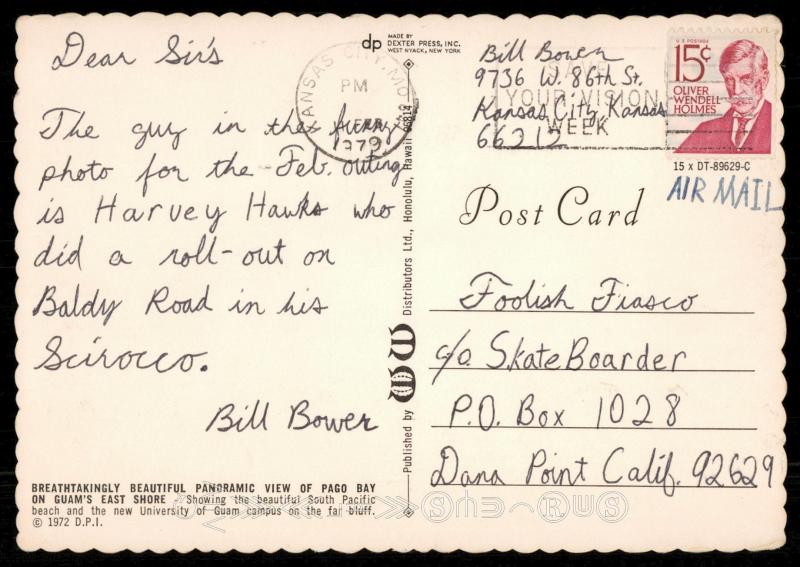 Dear Sir's
The guy in the funny
photo for the Feb. outing
is Harvey Hawks who
did a roll-out on
Baldy Road in his
Scirocco.
Bill Bower
BREATHTAKINGLY BEAUTIFUL PANORAMIC VIEW OF PAGO BAY
ON GUAM'S EAST SHORE - Showing the beautiful South Pacific
beach and the new University of Guam campus on the far bluff.
© 1972 D.P.I.
dp MADE BY
DEXTER PRESS, INC.
WEST NYACK, NEW YORK
Published by WW Distributors Ltd., Honolulu, Hawaii 96814
KANSAS CITY, MO
PM
1979
YOUR VISION
WEEK
Bill Bower
9736 W. 86th St.
Kansas City, Kansas
66212
U.S. POSTAGE
15¢
OLIVER
WENDELL
HOLMES
15 x DT-89629-C
AIR MAIL
Post Card
Foolish Fiasco
c/o SkateBoarder
P.O. Box 1028
Dana Point Calif. 92629